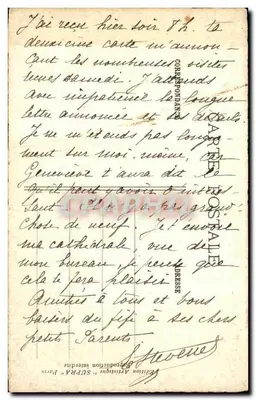 J'ai reçu hier soir 7h. ta
deuxième carte m'annon-
çant les nombreuses visites
lundi samedi. J'attends
avec impatience la longue
lettre annoncée et les détails
Je ne m'étends pas longue
ment sur moi-même, car
Geneviève t'aura dit ce
qu'il peut y avoir d'intéres
sant pas grand
chose de neuf. Je t'envoie
ma cathédrale, vue de
mon bureau, je pense que
cela te fera plaisir
Amitiés à tous et bons
baisers du fifi à ses chers
petits Parents
CARTE POSTALE
CORRESPONDANCE
ADRESSE
Edition Artistique "SUPRA" Paris
Reproduction interdite